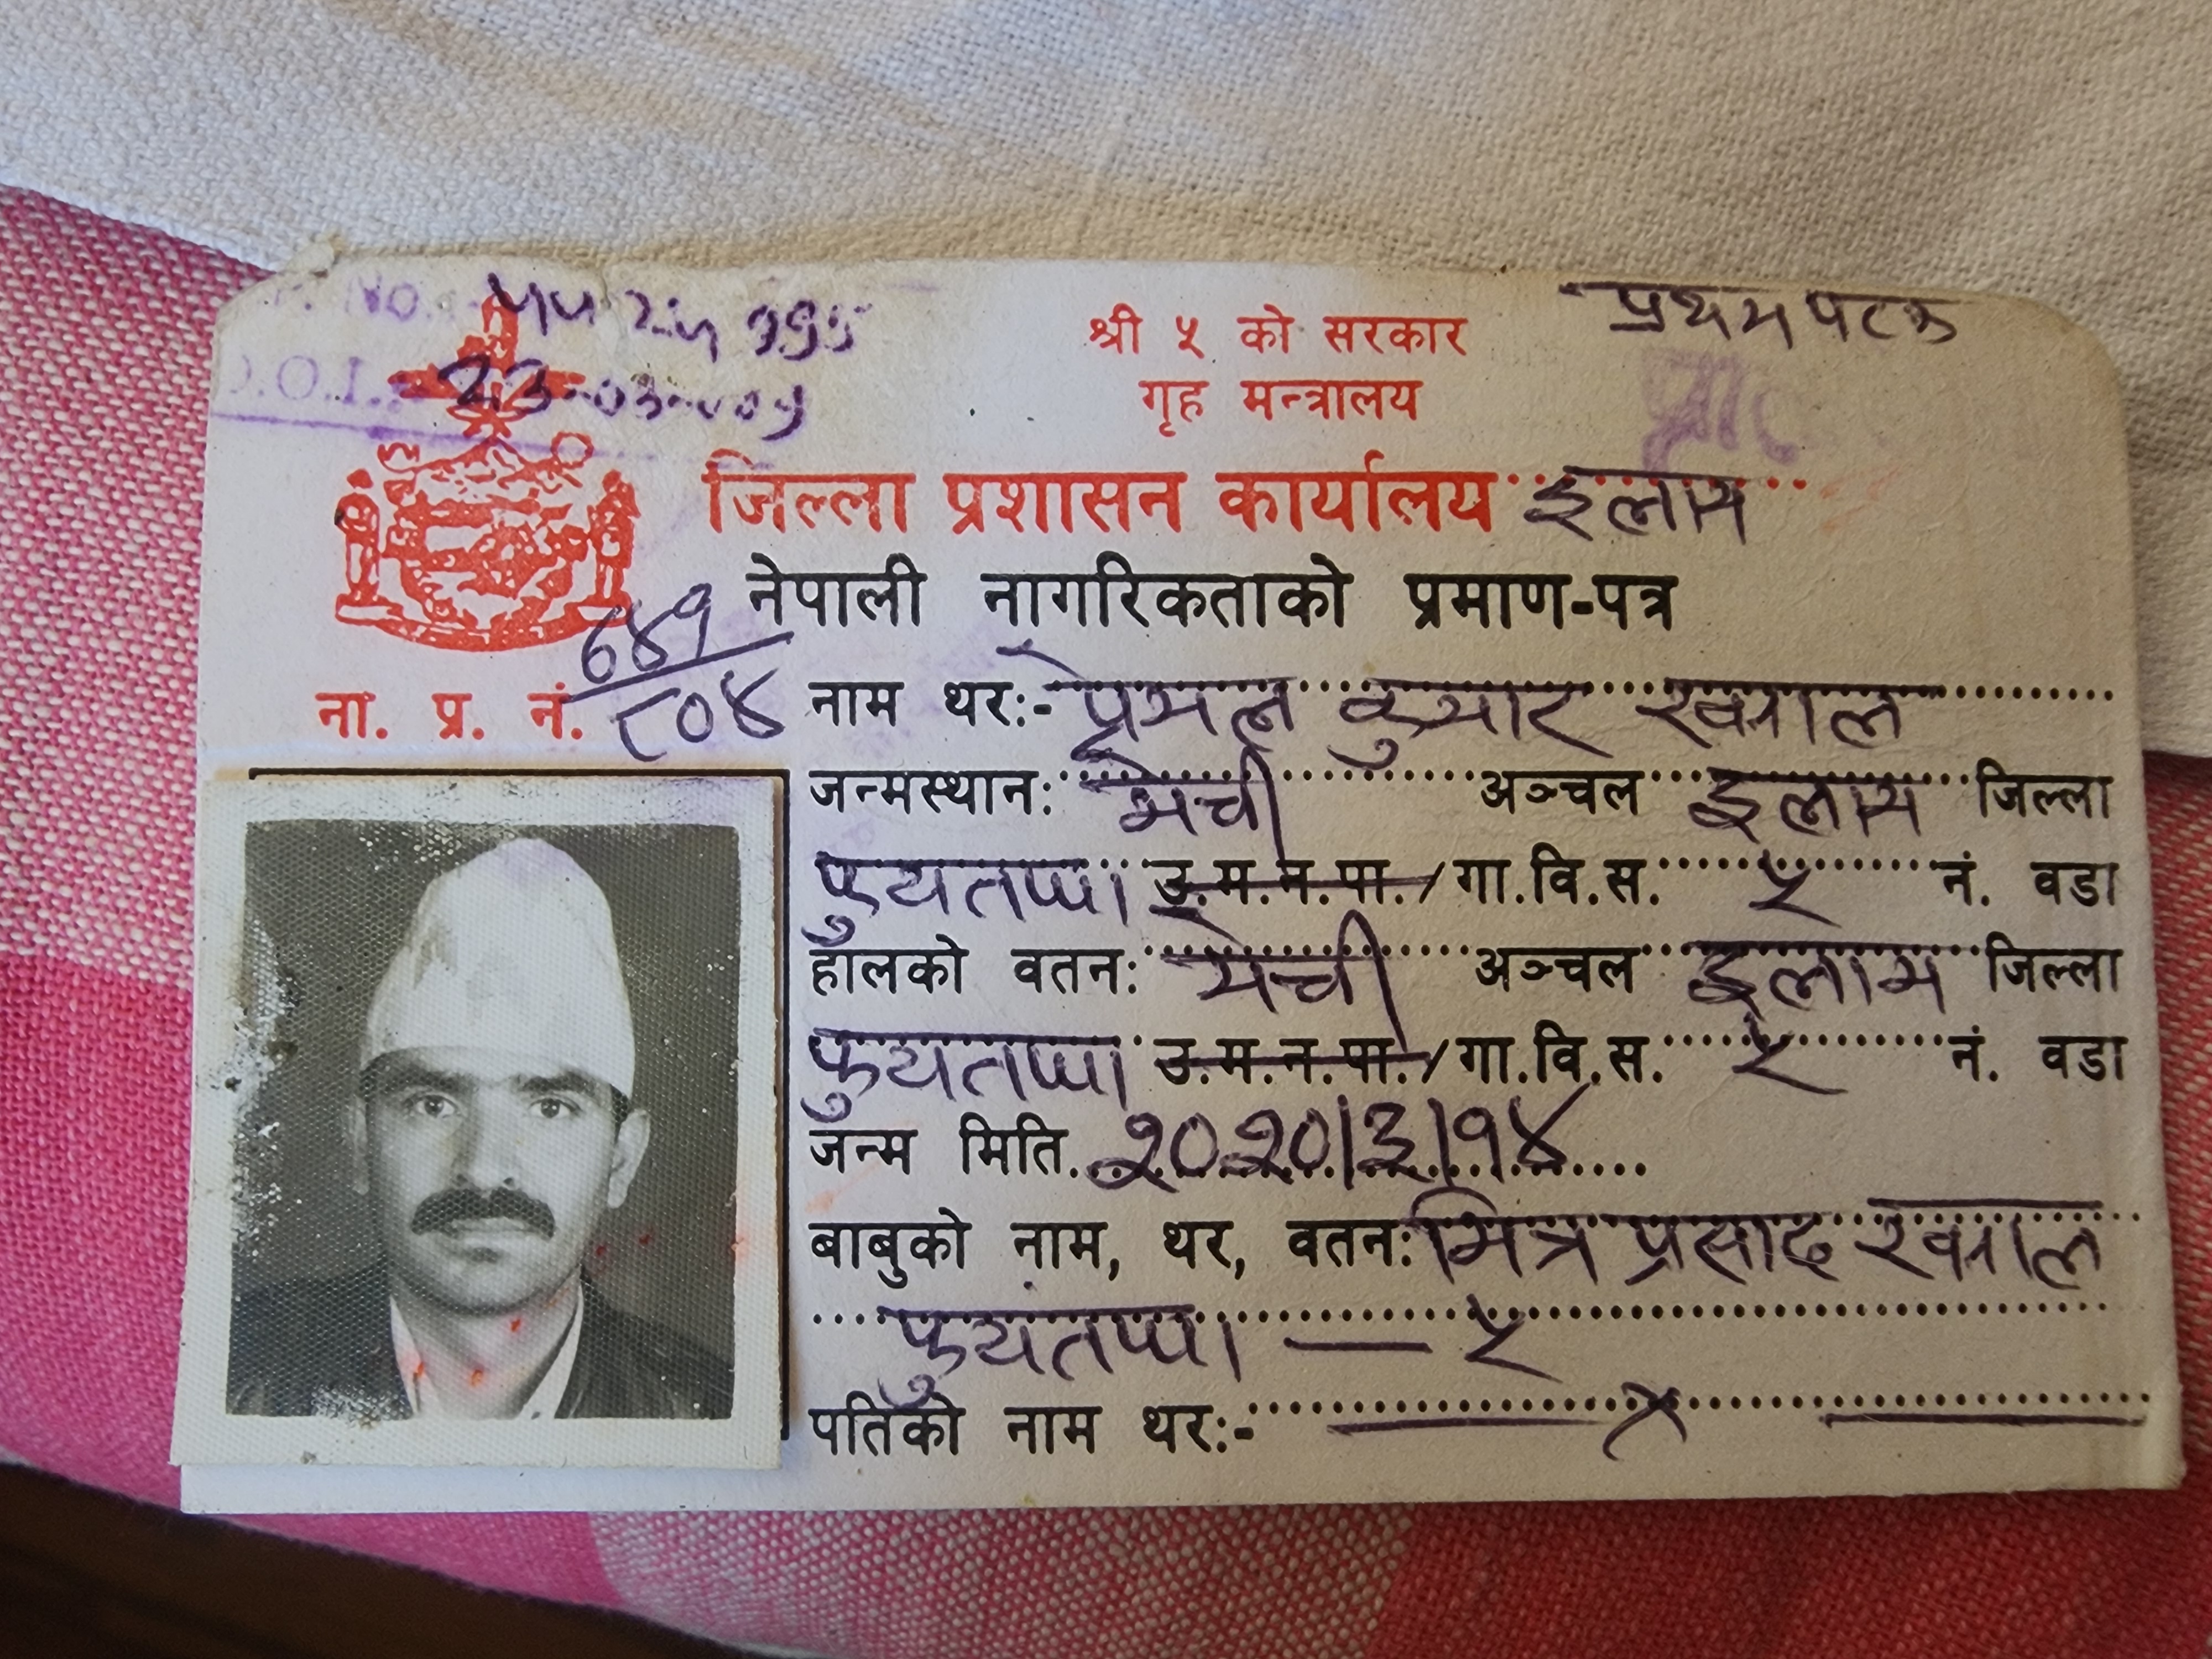 प्रथम पटक
श्री ५ को सरकार
गृह मन्त्रालय
23-03-
जिल्ला प्रशासन कार्यालय इलाम
नेपाली नागरिकताको प्रमाण-पत्र
ना. प्र. नं. ८०४
नाम थर:- प्रेमल कुमार खनाल
जन्मस्थान: मेची अञ्चल इलाम जिल्ला
फुयतप्पा उ.म.न.पा./गा.वि.स. ५ नं. वडा
हालको वतन: मेची अञ्चल इलाम जिल्ला
फुयतप्पा उ.म.न.पा./गा.वि.स. ५ नं. वडा
जन्म मिति. २०२०|३|१४
बाबुको नाम, थर, वतन: मित्र प्रसाद खनाल
फुयतप्पा — ५
पतिको नाम थर:- — × —